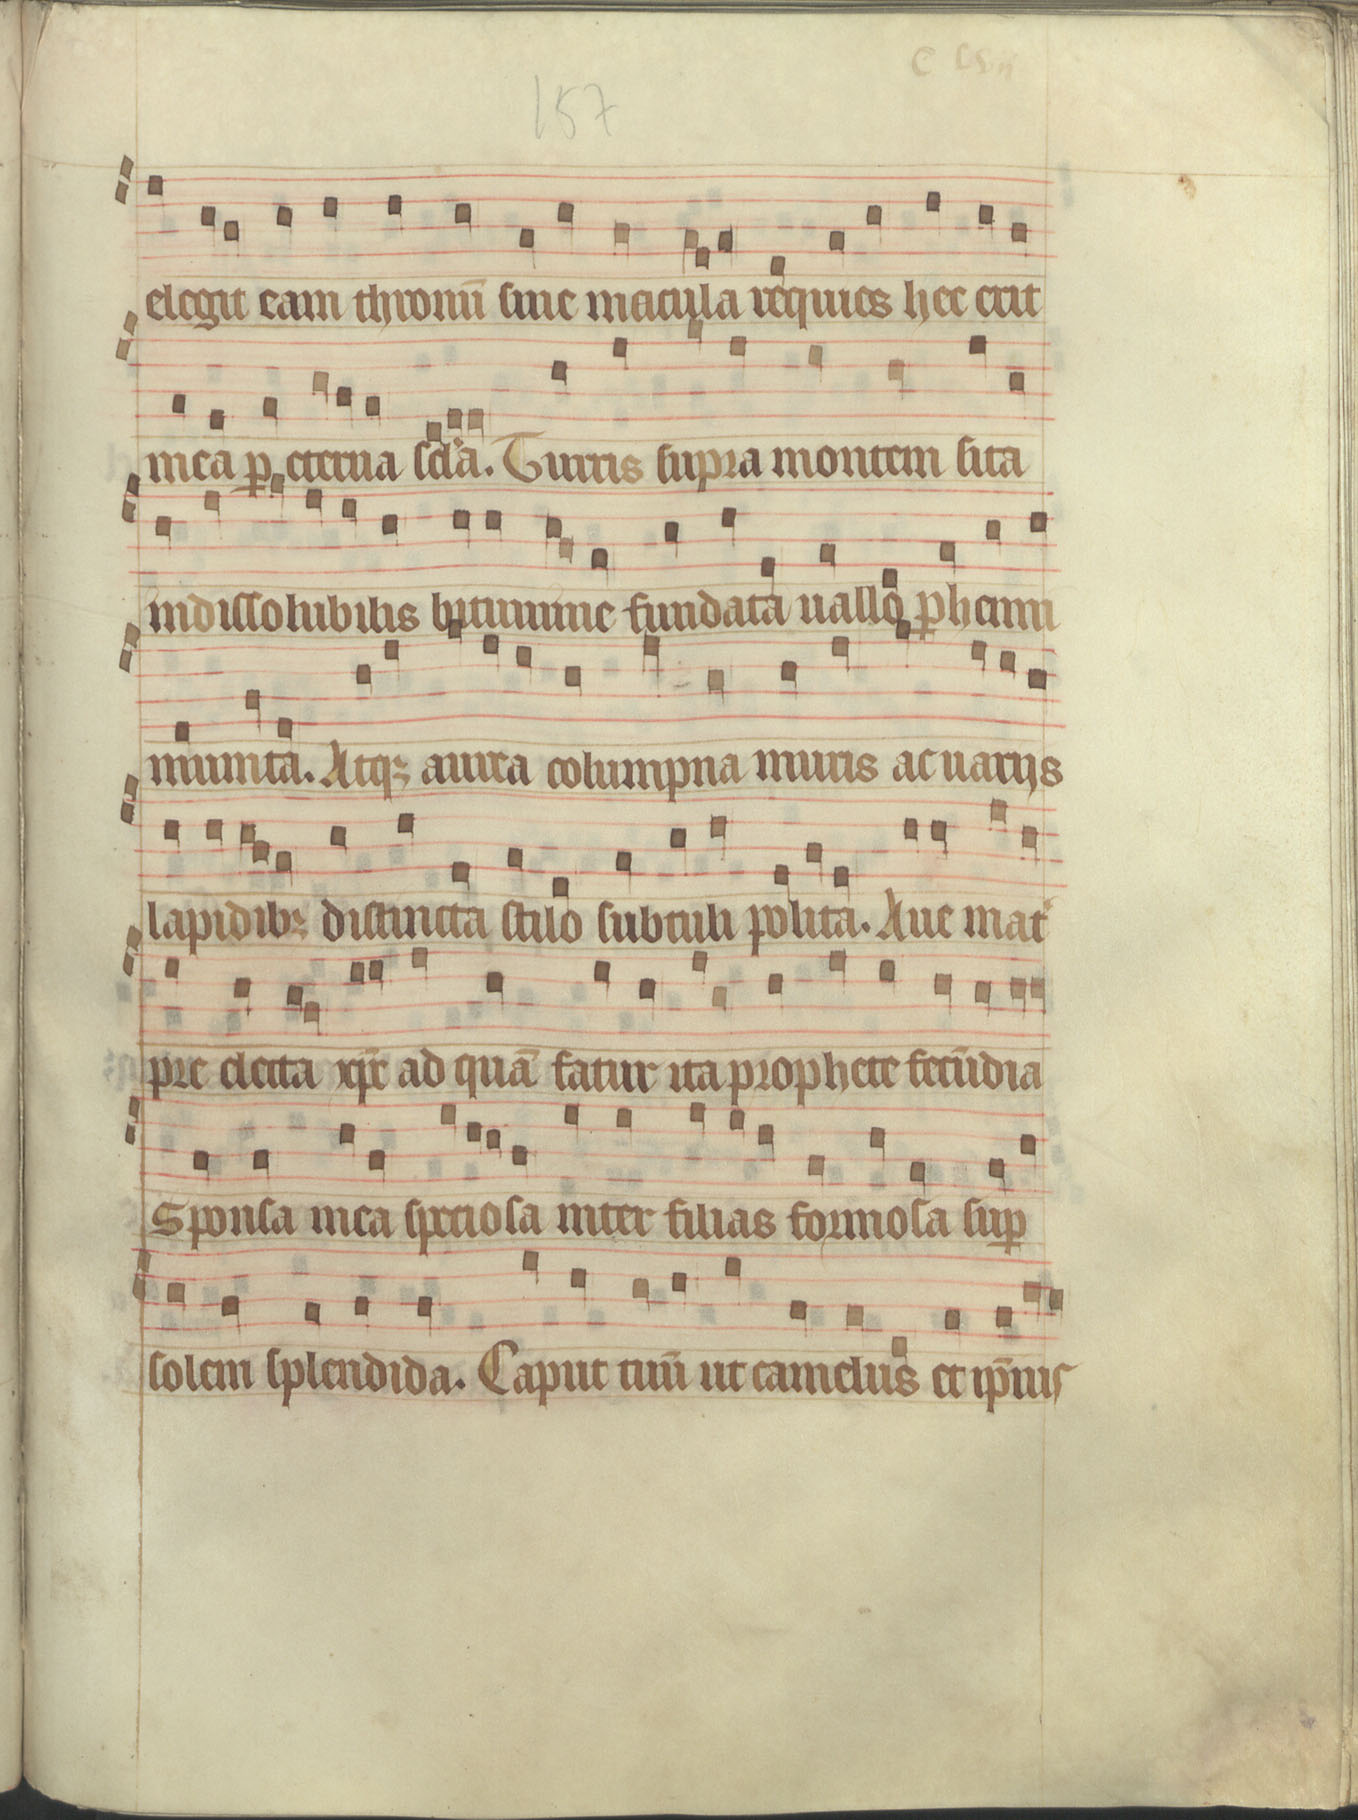 157
elegit eam thronū sine macula requies hec erit
mea ꝑ eterna scl̓a. Turris supra montem sita
indissolubilis bitumine fundata uallo ꝑhenni
munita. Atqꝫ aurea columpna miris ac uarijs
lapidibꝫ distincta stilo subtili polita. Aue mat̓
pre electa xp̄e ad quā fatur ita prophete fecūdia
Sponsa mea speciosa inter filias formosa suꝑ
solem splendida. Caput tuū ut camelus et ip̄ius